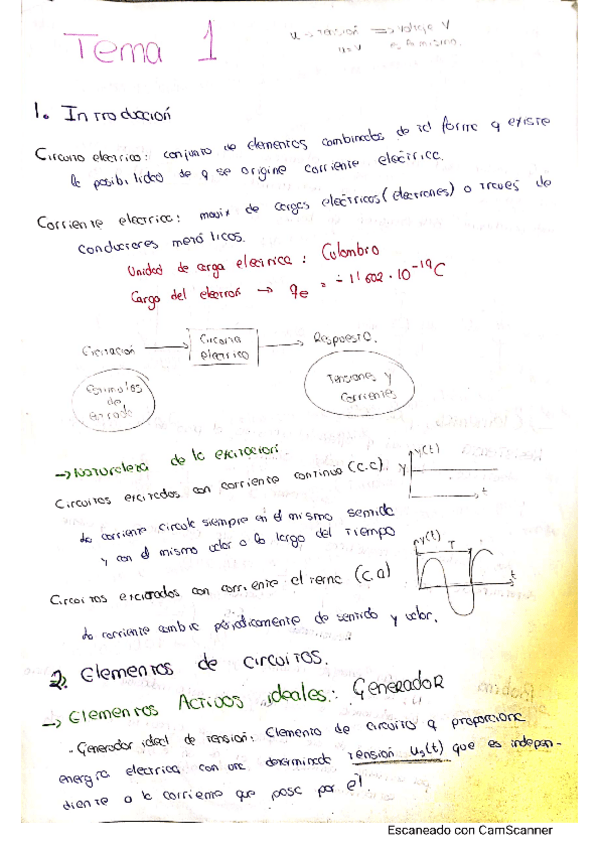 Tema 1
u → tensión ⇒ voltaje V
1. Introducción
Circuito electrico: conjunto de elementos combinados de tal forma q existe
la posibilidad de q se origine corriente electrica.
Corriente electrica: movix de cargas electricas (electrones) a traves de
conductores metálicos.
Unidad de carga electrica: Culombio
Carga del electron → qe = -1'602·10⁻¹⁹C
Excitación
Circuito
electrico
Respuesta.
Estimulos
de
entrada
Tensiones y
Corrientes
→ Naturaleza de la excitacion
Circuitos excitados con corriente continua (c.c).
y
y(t)
t
la corriente circula siempre en el mismo sentido
y con el mismo valor a lo largo del tiempo
y(t)
T
t
Circuitos excitados con corriente alterna (c.a)
la corriente cambia periodicamente de sentido y valor.
2. Elementos de circuitos.
→ Elementos Activos ideales: Generador
- Generador ideal de tensión: Elemento de circuito q proporciona
energia electrica con una determinada tensión us(t) que es indepen-
diente a la corriente que pasa por el.
Escaneado con CamScanner